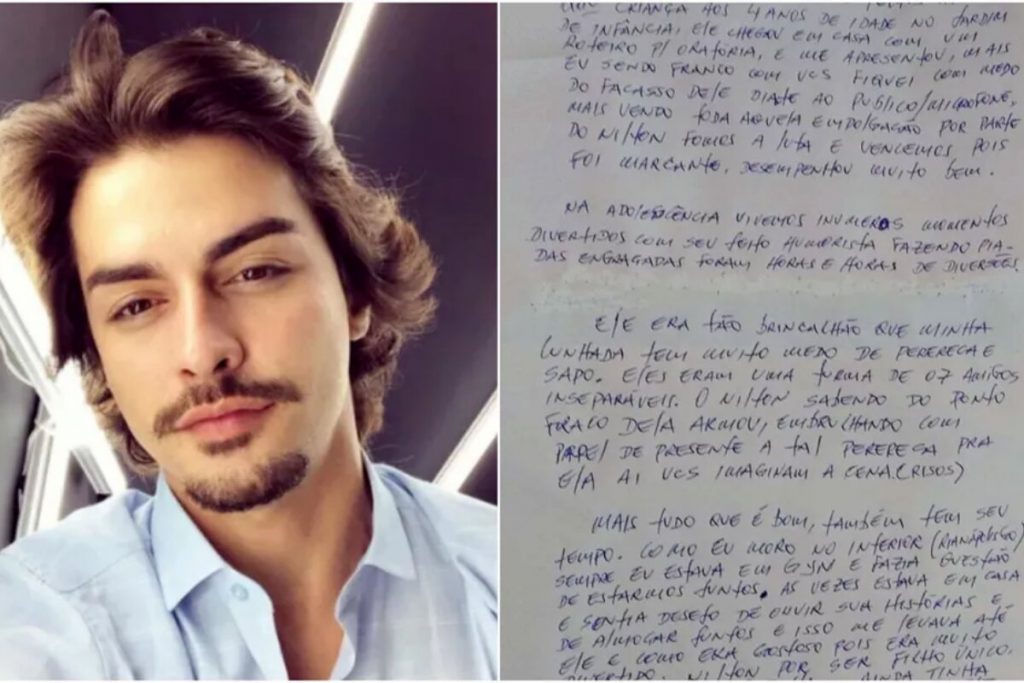 UMA CRIANÇA AOS 4 ANOS DE IDADE NO JARDIM
DE INFÂNCIA, ELE CHEGOU EM CASA COM UM
ROTEIRO P/ ORATÓRIA, E ME APRESENTOU, MAIS
EU SENDO FRANCO COM VCS FIQUEI COM MEDO
DO FACASSO DELE DIATE AO PUBLICO/MICROFONE,
MAIS VENDO TODA AQUELA EMPOLGAGÃO POR PARTE
DO NILTON FOMOS A LUTA E VENCEMOS POIS
FOI MARCANTE, DESEMPENHOU MUITO BEM.
NA ADOLESCÊNCIA VIVEMOS INUMEROS MOMENTOS
DIVERTIDOS COM SEU JEITO HUMORISTA FAZENDO PIA-
DAS ENGRAGADAS FORAM HORAS E HORAS DE DIVERSÕES.
ELE ERA TÃO BRINCALHÃO QUE MINHA
CUNHADA TEM MUITO MEDO DE PERERECA E
SAPO. ELES ERAM UMA TURMA DE 07 AMIGOS
INSEPARÁVEIS. O NILTON SABENDO DO PONTO
FRACO DELA ARMOU, EMBRULHANDO COM
PAPEL DE PRESENTE A TAL PERERECA PRA
ELA AI VCS IMAGINAM A CENA.(RISOS)
MAIS TUDO QUE É BOM, TAMBÉM TEM SEU
TEMPO. COMO EU MORO NO INTERIOR
SEMPRE EU ESTAVA EM GYN E FAZIA QUESTÃO
DE ESTARMOS JUNTOS, AS VEZES ESTAVA EM CASA
E SENTIA DESEJO DE OUVIR SUA HISTÓRIAS E
DE ALMOGAR JUNTOS E ISSO ME LEVAVA ATÉ
ELE E COMO ERA GOSTOSO POIS ERA MUITO
DIVERTIDO. NILTON POR SER FILHO ÚNICO.
AINDA TINHA